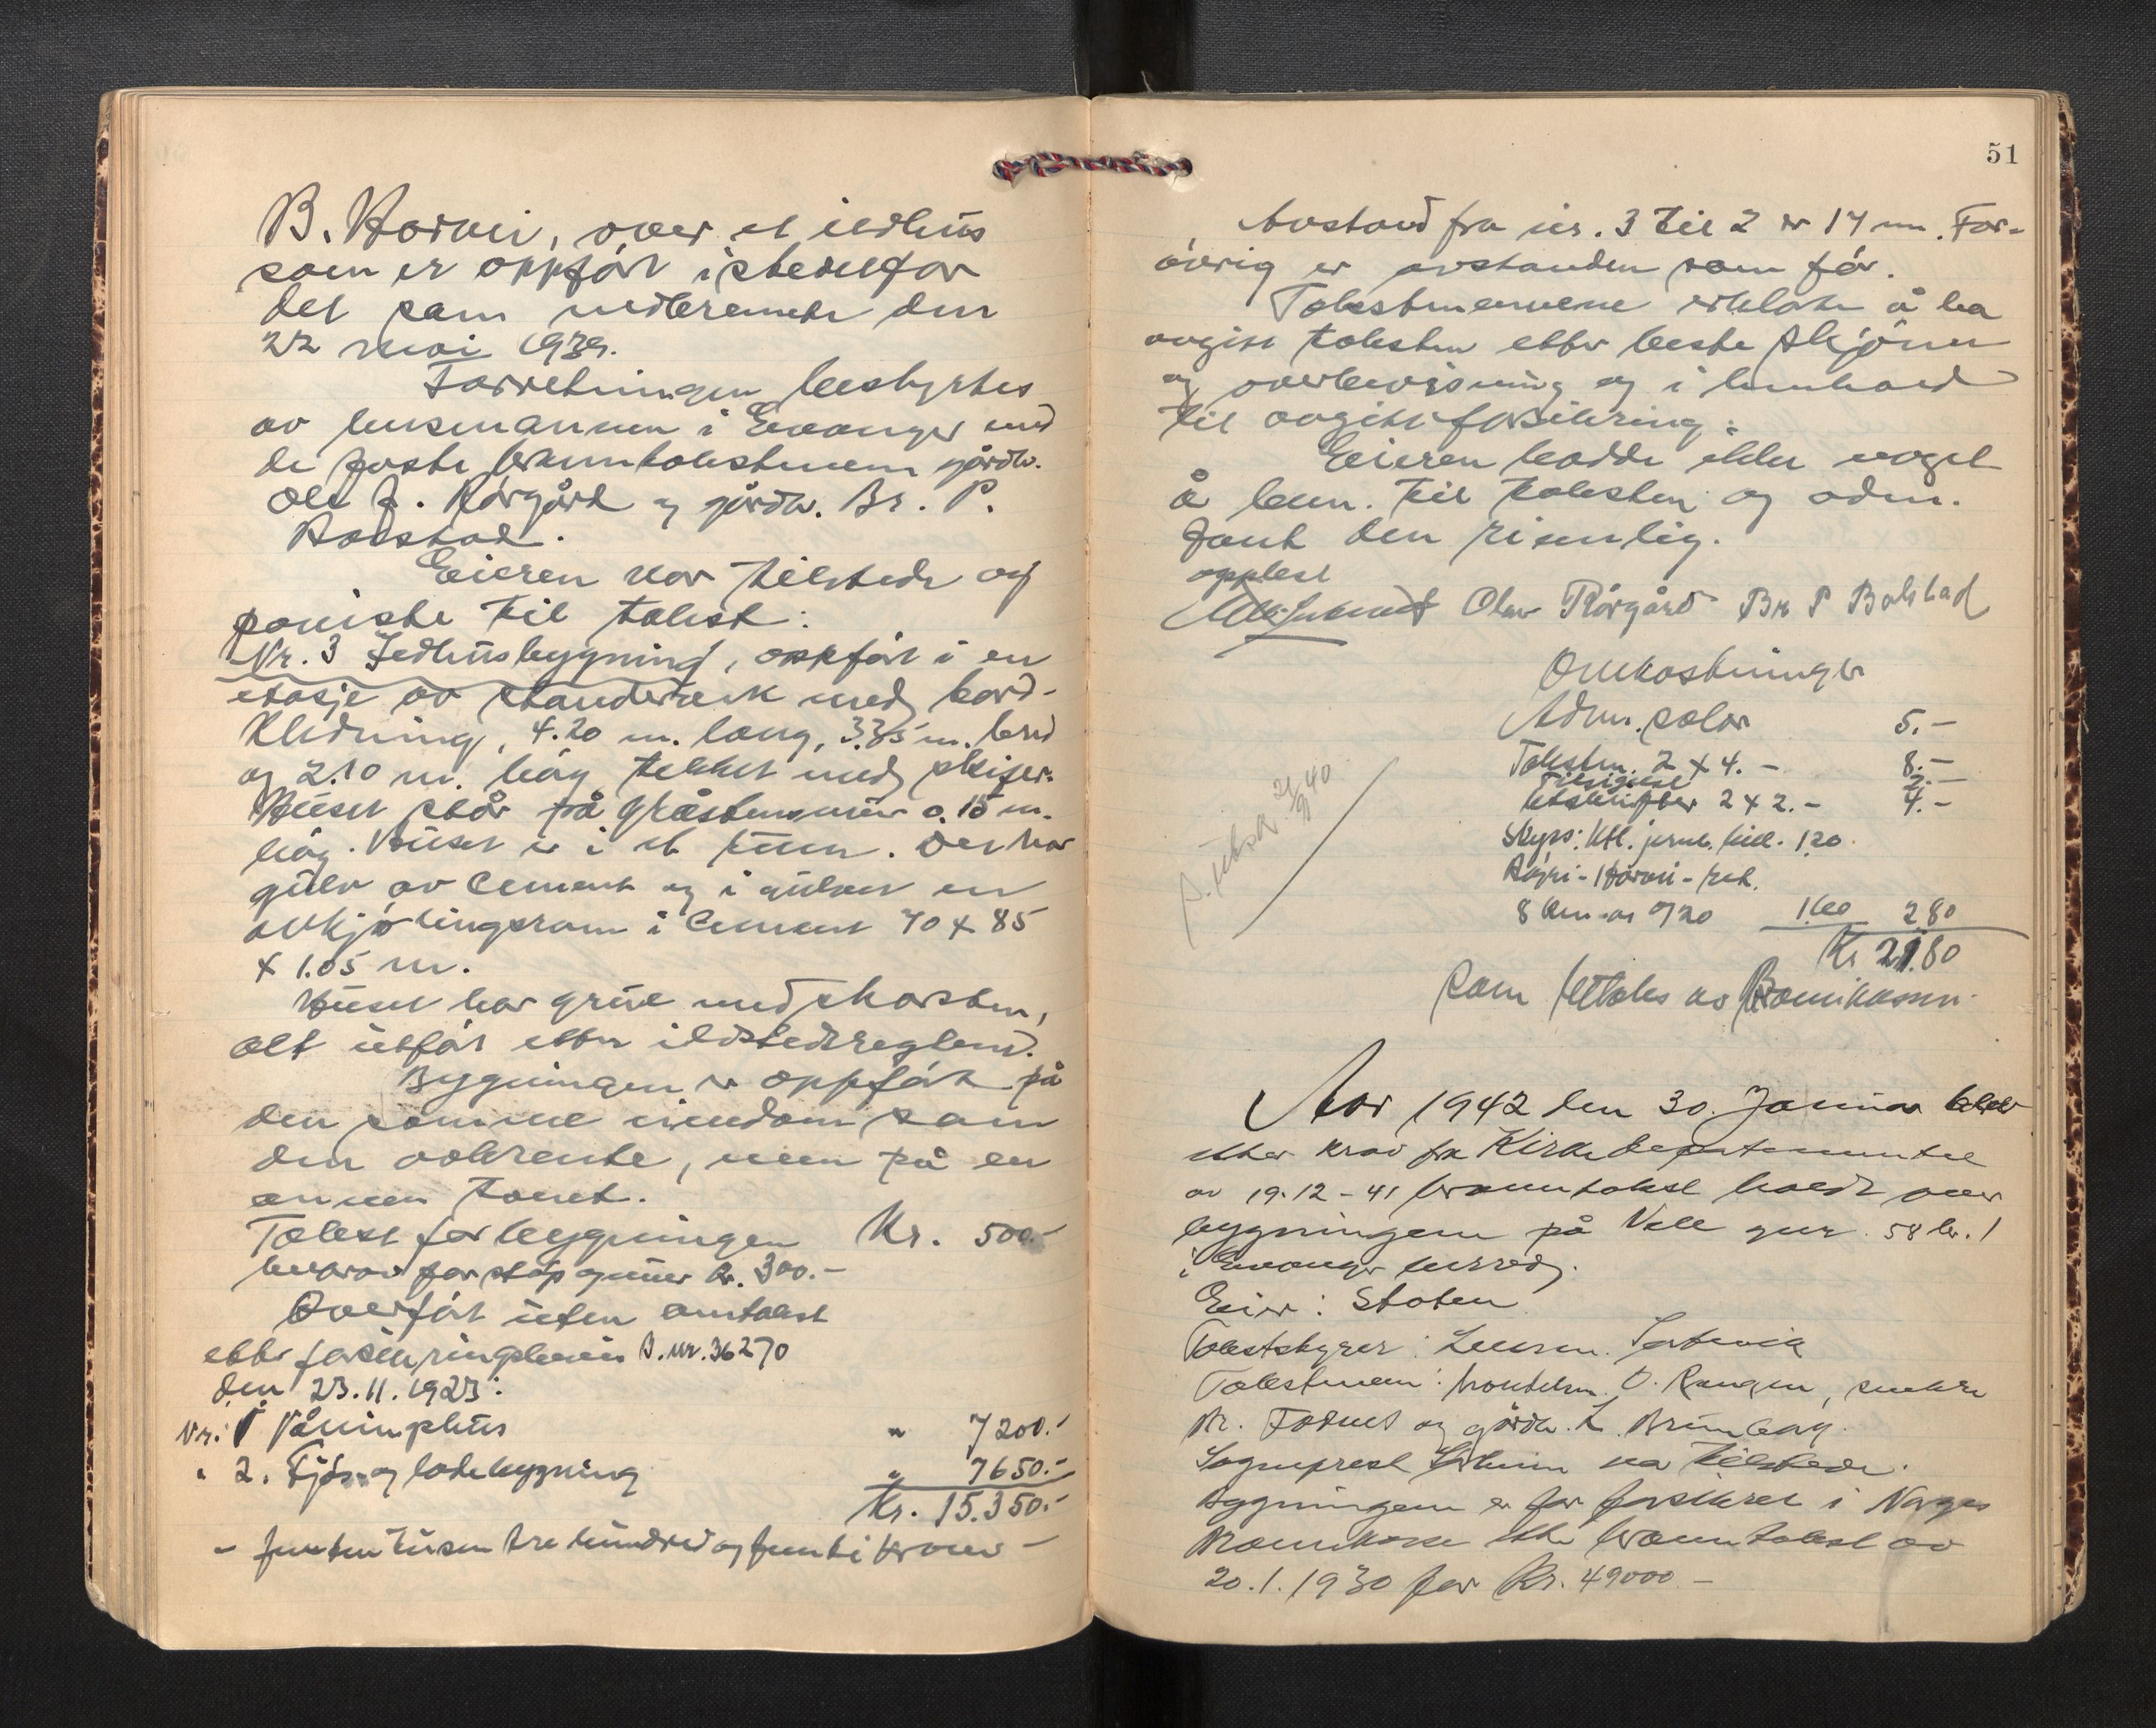 B. Horvei, over et ildhus
som er oppført istedenfor
det som nedbrente den
22 mai 1939.
Forretningen bestyrtes
av lensmannen i Evanger med
de faste branntakstmenn gårdbr.
Ole J. Rørgård og gårdbr. Br. P.
Bolstad.
Eieren var tilstede og
påviste til takst:
Nr. 3 Ildhusbygning, oppført i en
etasje av standerverk med bord-
kledning, 4.20 m. lang, 3.35 m. bred
og 2.10 m. høg tekket med skifer.
Huset står på gråstensmur o. 15 m.
høg. Huset er i et rum. Det har
gulv av cement og i gulvet en
avkjølingsrom i cement 70 x 85
x 1.05 m.
Huset har grue med skorsten,
alt utført etter ildstedsreglem.
Bygningen er oppført på
den samme eiendom som
den avbrente, men på en
annen tomt.
Takst for bygningen Kr. 500.-
herav for støp og mur kr. 300.-
Overført uten omtakst
etter forsikringsbevis B. nr. 36270
den 23.11.1923:
Nr. 1 Våningshus " 7200.-
" 2. Fjøs og ladebygning " 7650.-
Kr. 15.350.-
- femten tusen tre hundred og femti kroner -
51
Avstand fra nr. 3 til 2 er 17 m. For-
øvrig er avstanden som før.
Takstmennene erklærte å ha
avgitt taksten etter beste skjønn
og overbevisning og i henhold
til avgitt forsikring.
Eieren hadde ikke noget
å bem. til taksten og adm.
fant den rimelig.
opplest
Olav Rørgård Br P Bolstad
Omkostninger
Adm. salær 5.-
Takstm. 2 x 4.- 8.-
Tilsigelse 2.-
Utskrifter 2 x 2.- 4.-
Skyss: Ktl. jernb. bill. 1.20
Bolstad - Horvei - ret.
8 km. a 020 1.60 2.80
Kr 21.80
som uttales av Brannkassen.
p. utskr. 2/9 40
Aar 1942 den 30. Januar blev
etter krav fra Kirkedepartementet
av 19.12-41 branntakst holdt over
bygningene på Vele gnr. 58 br. 1
i Evanger herred.
Eier: Staten
Takstbestyrer: Lensm. Sortevik
Takstmenn: handelsm. O. Rangen, snekker
Br. Fadnes og gårdbr. L. Brunborg.
Sogneprest var tilstede.
Bygningene er før forsikret i Norges
Brannkasse etter branntakst av
20.1.1930 for Kr. 49000.-